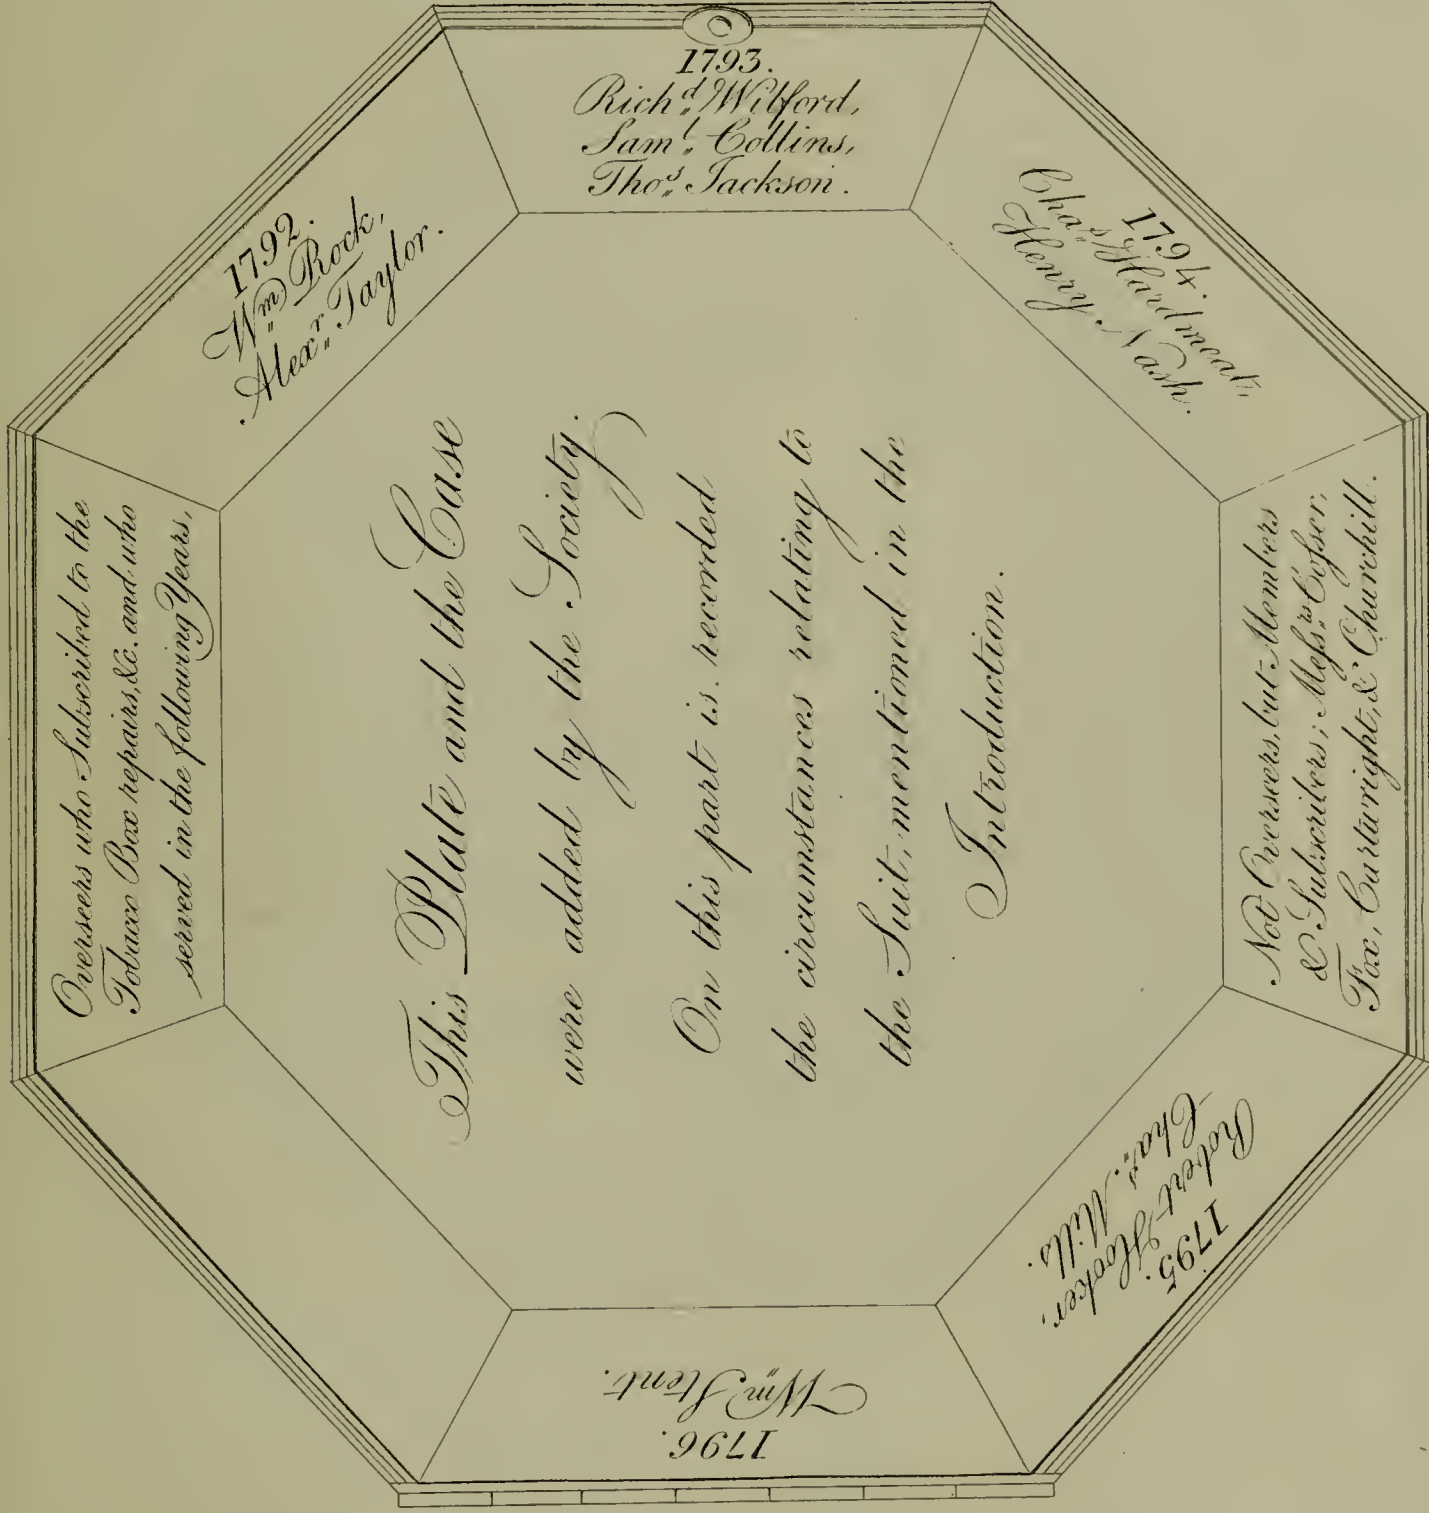 This Plate and the Case
were added by the Society.
On this part is recorded
the circumstances relating to
the Suit, mentioned in the
Introduction.
Overseers who Subscribed to the
Tobacco Box repairs, &c. and who
served in the following Years,
1792.
Wm. Rock,
Alexr. Taylor.
1793.
Richd. Wilford,
Saml. Collins,
Thos. Jackson.
1794.
Chas. Hardmeat,
Henry Nash.
Not Overseers, but Members
& Subscribers; Meſsrs. Coſser,
Fox, Cartwright, & Churchill.
1795.
Robert Hooker,
Chas. Mills.
1796.
Wm. Stent.